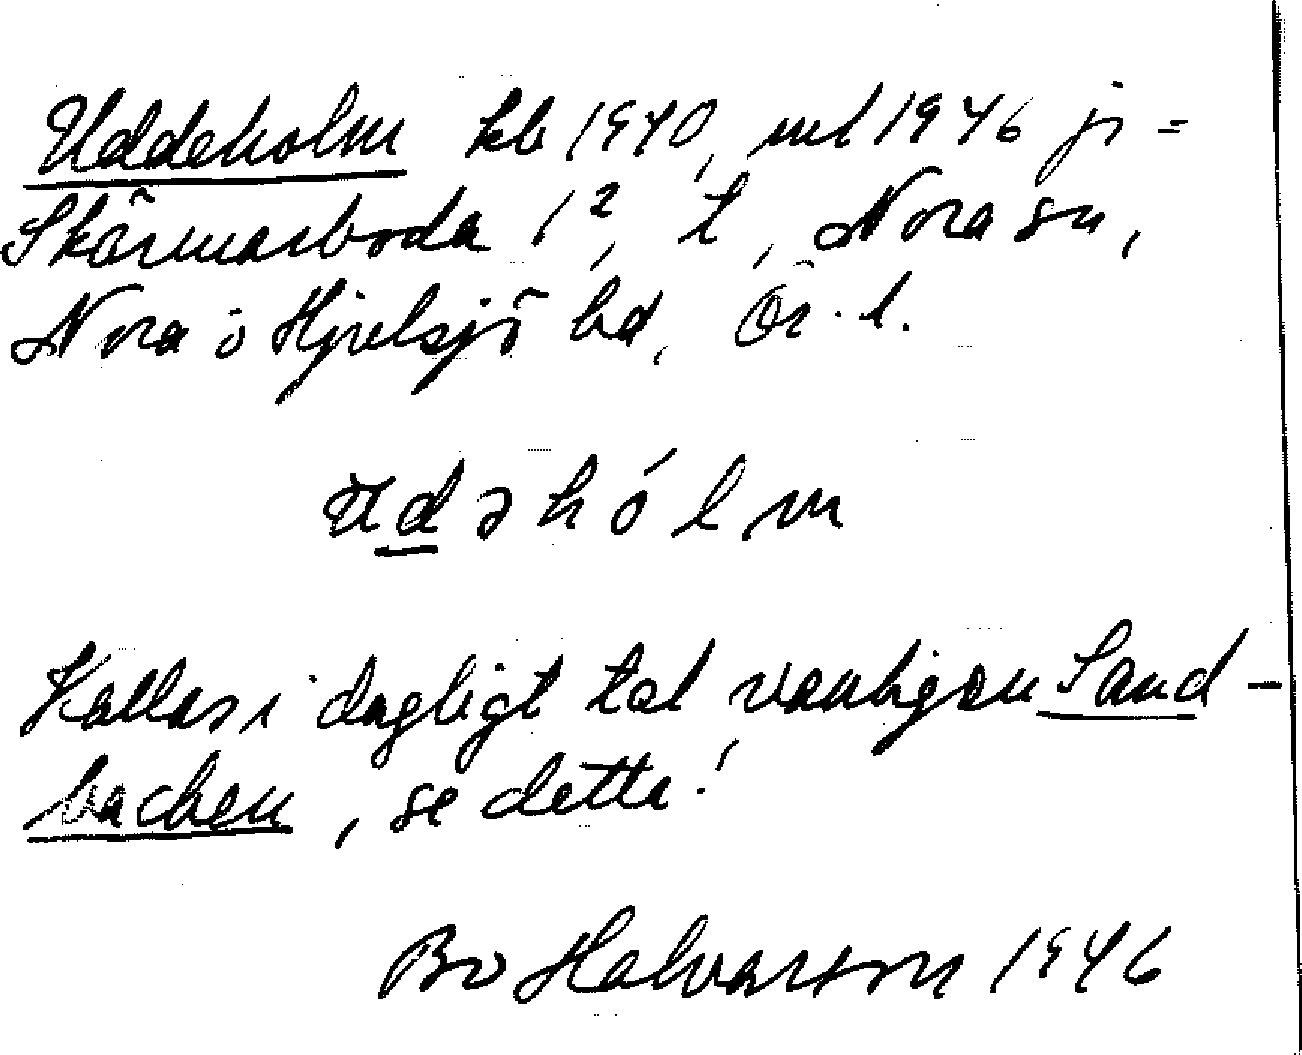 Uddeholm kb 1940, ml 1946 ji =
Skärmarboda 1², l, Nora sn,
Nora o Hjulsjö bd, Ör. l.
u̇dəhólm
Kallas i dagligt tal vanligen Sand-
backen, se detta!
Bo Halvarson 1946